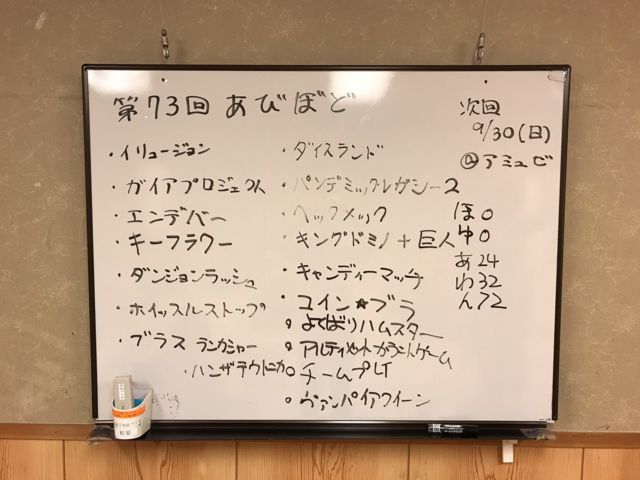 第73回 あびぼど
次回
9/30(日)
@アミュゼ
・イリュージョン
・ガイアプロジェクト
・エンデバー
・キーフラワー
・ダンジョンラッシュ
・ホイッスルストップ
・ブラス ランカシャー
・ハンザテウトニカ
・ダイスランド
・パンデミックレガシー2
・ヘックメック
・キングドミノ+巨人
・キャンディーマッチ
・コイン☆ブラ
・よくばりハムスター
・アルティメットカラントゲーム
○チームプLT
・ヴァンパイアクイーン
ほ0
ゆ0
あ24
わ32
ん72